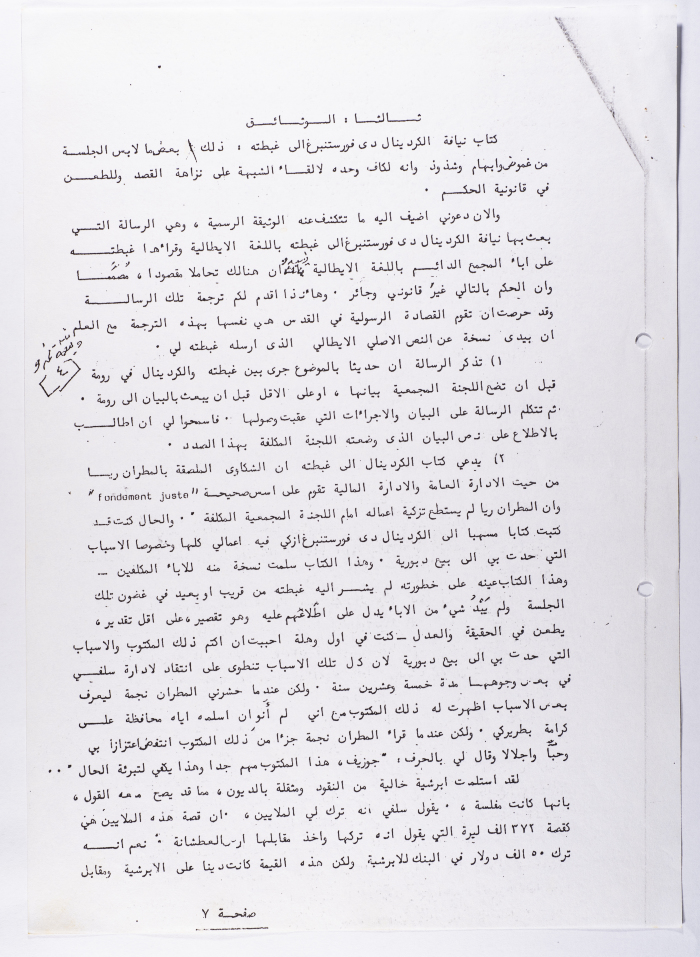 ثـالـثـا : الـوثـائـق
كتاب نيافة الكردينال دى فورستنبرغ الى غبطته ، ذلك بعض ما لابس الجلسة
من غموض وابهام وشذوذ وانه لكاف وحده لالقـــاء الشبهة على نزاهة القصد وللطعـــن
في قانونية الحكـــم .
والان دعوني اضيف اليه ما تتكشف عنه الوثيقة الرسمية ، وهي الرسالة التـــي
بعث بها نيافة الكردينال دى فورستنبرغ الى غبطته باللغة الايطالية وقراءها غبطتـــه
على اباء المجمع الدائـــم باللغة الايطالية ان هنالك تحاملا مقصودا ، مُصَمَّمـــا
وان الحكم بالتالي غيرُ قانوني وجائر . وهاءنذا اقدم لكم ترجمة تلك الرسالـــة
وقد حرصت ان تقوم القصادة الرسولية في القدس هي نفسها بهذه الترجمة مع العلم
ان بيدى نسخة عن النص الاصلي الايطالي الذى ارسله غبطته لي .
١) تذكر الرسالة ان حديثا بالموضوع جرى بين غبطته والكردينال في رومة
قبل ان تضع اللجنة المجمعية بيانها ، اوعلى الاقل قبل ان يبعث بالبيان الى رومة .
ثم تتكلم الرسالة على البيان والاجراءات التي عقبت وصولها . فاسمحوا لي ان اطالـــب
بالاطلاع على نص البيان الذى وضعته اللجنة المكلفة بهذا الصدد .
٢) يدعي كتاب الكردينال الى غبطته ان الشكاوى الملصقة بالمطران ريـــا
من حيث الادارة العامة والادارة المالية تقوم على اسس صحيحة "fondament juste"
وان المطران ريا لم يستطع تزكية اعماله امام اللجنة المجمعية المكلفة . والحال كنت قـــد
كتبت كتابا مسهبا الى الكردينال دى فورستنبرغ ازكي فيه اعمالي كلها وخصوصا الاسباب
التي حدت بي الى بيع دبورية . وهذا الكتاب سلمت نسخة منه للاباء المكلفين ــ
وهذا الكتاب عينه على خطورته لم يشـــر اليه غبطته من قريب او بعيد في غضون تلك
الجلسة ولم يَبْدُ شيء من الاباء يدل على اطّلاعهم عليه وهو تقصير ، على اقل تقدير ،
يطعن في الحقيقة والعدل ــ كنت في اول وهلة احببت ان اكتم ذلك المكتوب والاسباب
التي حدت بي الى بيع دبورية لان كل تلك الاسباب تنطوى على انتقاد لادارة سلفـــي
في بعض وجوهها مدة خمسة وعشرين سنة . ولكن عندما حشرني المطران نجمة ليعرف
بعض الاسباب اظهرت له ذلك المكتوب مع اني لم أنوان اسلمه اياه محافظة علـــى
كرامة بطريركي . ولكن عندما قراء المطران نجمة جزءا من ذلك المكتوب انتفض اعتزازا بي
وحبّاً واجلالا وقال لي بالحرف : "جوزيف ، هذا المكتوب مهم جدا وهذا يكفي لتبرئة الحال" ..
لقد استلمت ابرشية خالية من النقود ومثقلة بالديون ، مما قد يصح معه القول ،
بانها كانت مفلسة . يقول سلفي انه ترك لي الملايين . ان قصة هذه الملايين هي
كقصة ٣٧٢ الف ليرة التي يقول انه تركها واخذ مقابلها ارض العطشانة . نعم انـــه
ترك ٥٠ الف دولار في البنك للابرشية ولكن هذه القيمة كانت دينا على الابرشية ومقابل
صفحـة ٧